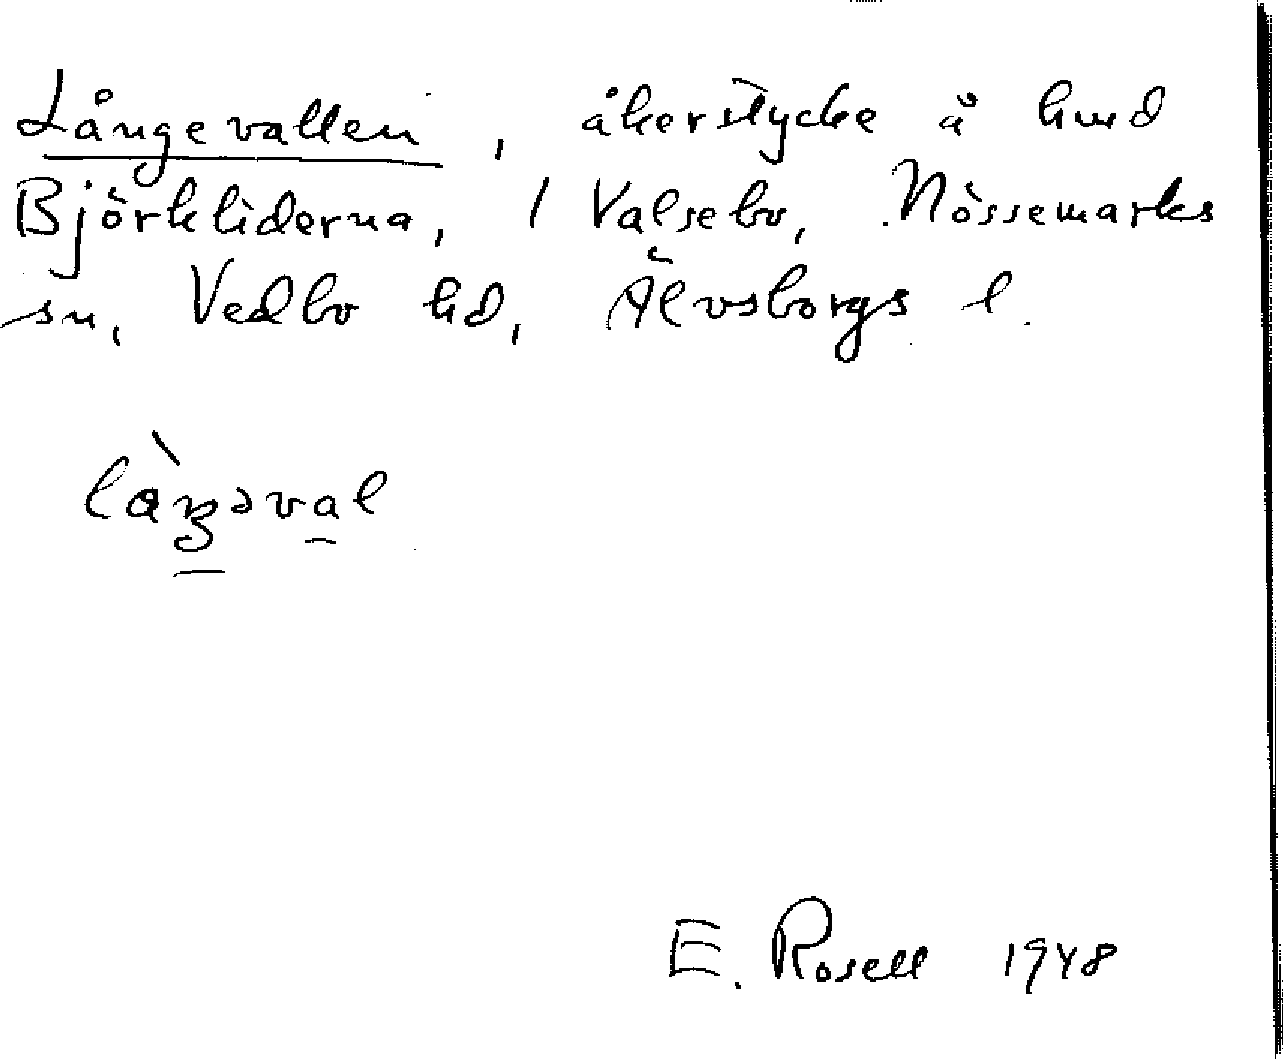 Långevallen, åkerstycke å hmd
Björkliderna, 1 Valsebo, Nössemarks
sn, Vedbo hd, Älvsborgs l.
E. Rosell 1948